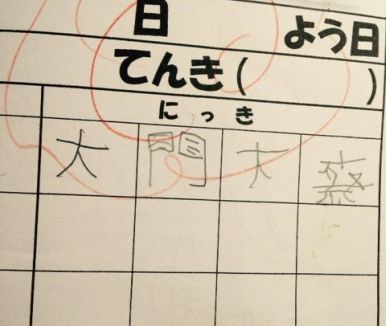 日　よう日
てんき(　)
にっき
大門大祭